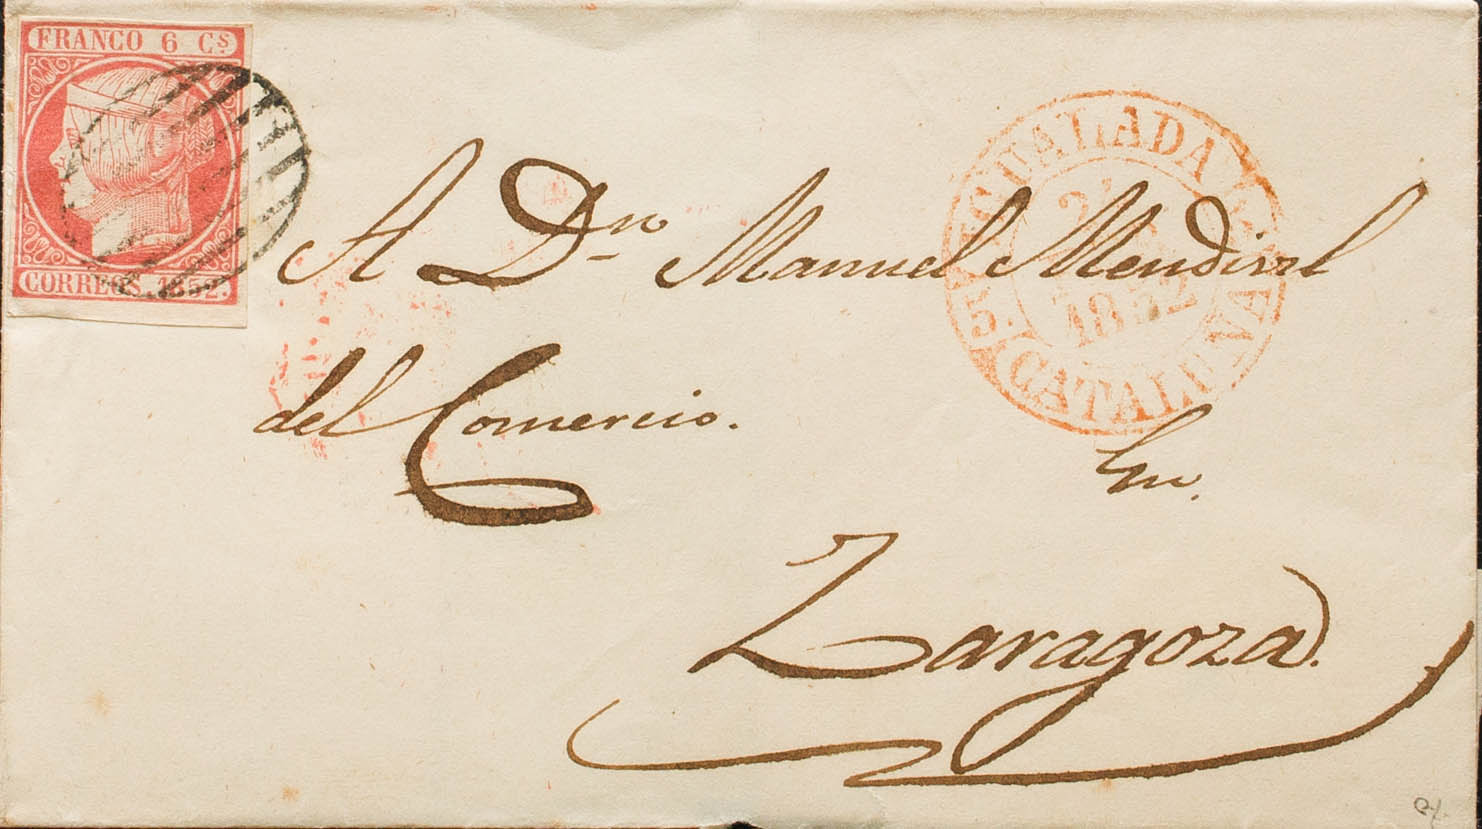 FRANCO 6 Cs
CORREOS. 1852.
IGUALADA Y S.
1852
5. CATALUÑA
A Dn. Manuel Mendivil
del Comercio.
En
Zaragoza.